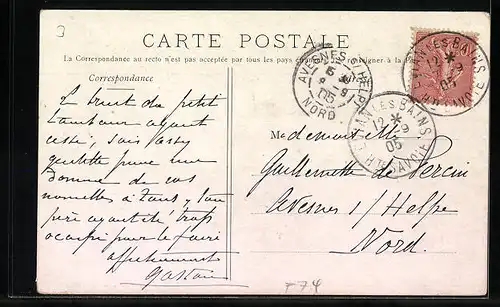 CARTE POSTALE
La Correspondance au recto n'est pas acceptée par tous les pays étrangers
Correspondance
Le bruit du petit
tambour ayant
cessé, sois assez
gentille pour me
donner de vos
nouvelles à tous, ton
père ayant été trop
occupé pour le faire
affectueusement
Gaston
AVESNES S/ HELPE
NORD
EVIAN LES BAINS
HTE SAVOIE
12 * 9 05
EVIAN LES BAINS
HTE SAVOIE
12 * 9 05
Mademoiselle
Guillemette de Percin
Avesnes s/ Helpe
Nord.
F74